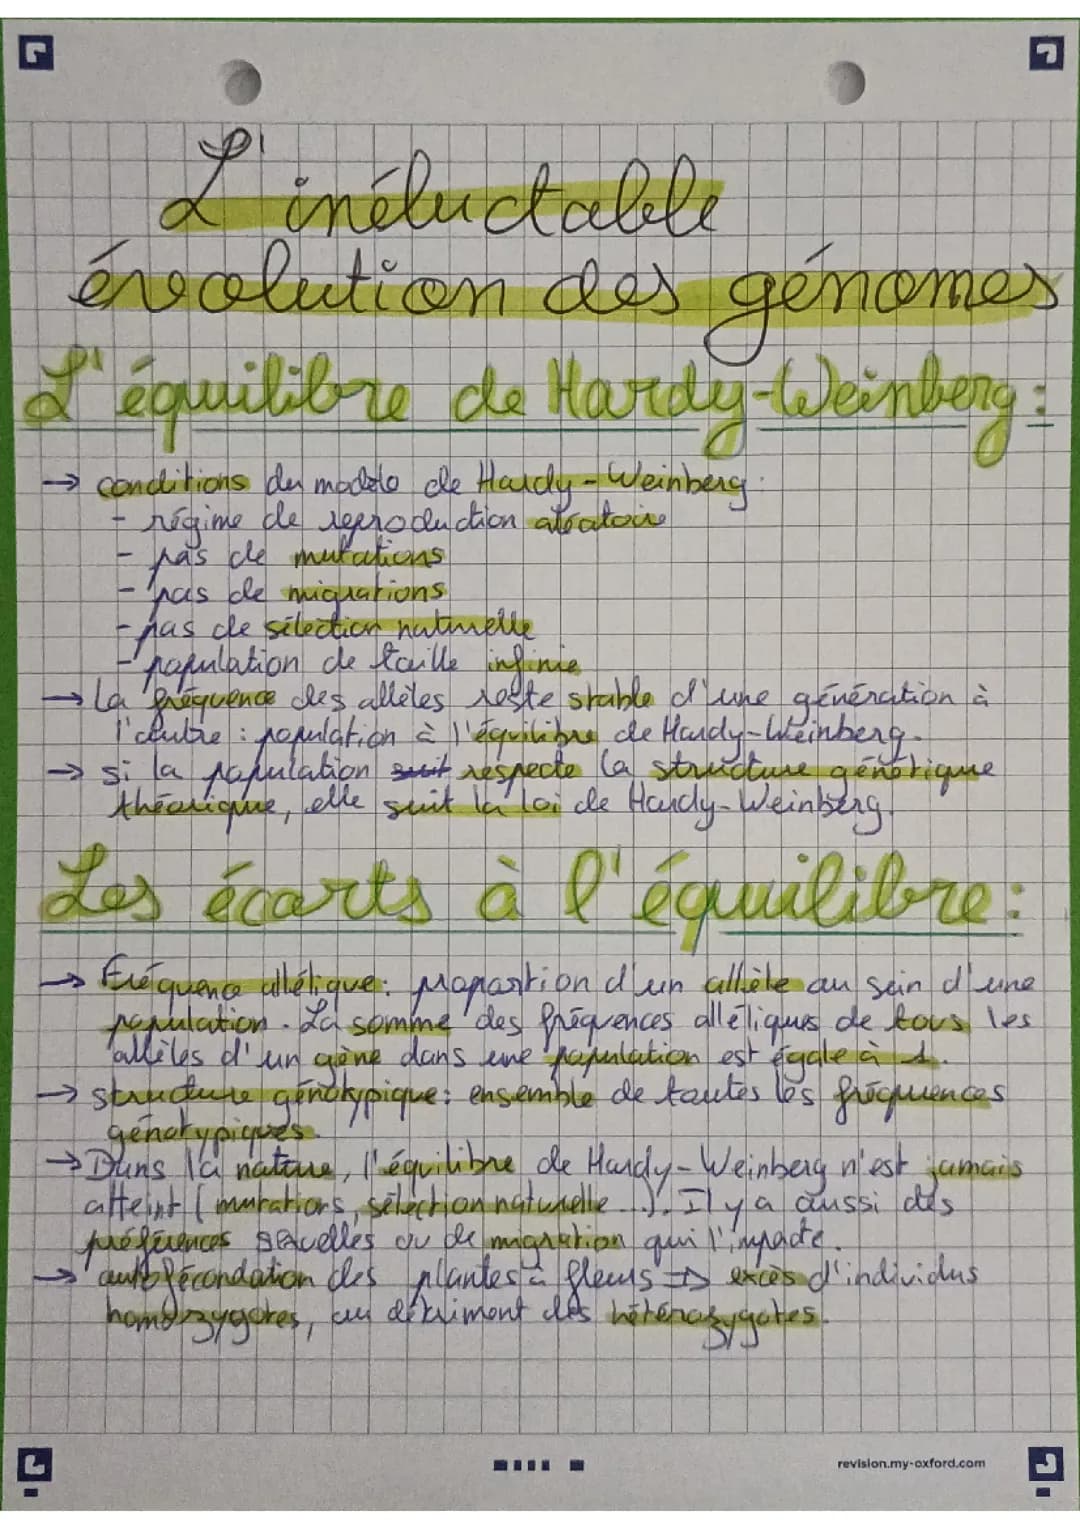 L'inéluctable
évolution des génomes
L'équilibre de Hardy-Weinberg :
→ conditions du modèle de Hardy-Weinberg :
- régime de reproduction aléatoire
- pas de mutations
- pas de migrations
- pas de sélection naturelle
- population de taille infinie
→ la fréquence des allèles reste stable d'une génération à
l'autre : population à l'équilibre de Hardy-Weinberg.
→ si la population suit respecte la structure génétique
théorique, elle suit la loi de Hardy-Weinberg.
Les écarts à l'équilibre :
→ Fréquence allélique : proportion d'un allèle au sein d'une
population. La somme des fréquences alléliques de tous les
allèles d'un gène dans une population est égale à 1.
→ structure génotypique : ensemble de toutes les fréquences
génotypiques.
→ Dans la nature, l'équilibre de Hardy-Weinberg n'est jamais
atteint (mutations, sélection naturelle...). Il y a aussi des
préférences sexuelles ou de migration qui l'impacte.
→ autofécondation des plantes à fleurs ⇒ excès d'individus
homozygotes, au détriment des hétérozygotes.
revision.my-oxford.com